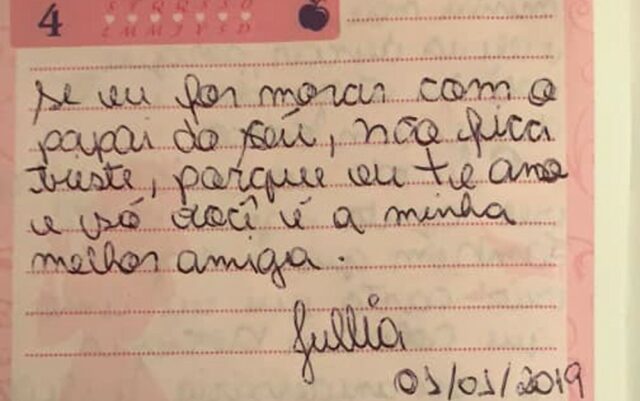 4
S T Q Q S S D
L M M J V S D
se eu for morar com o
papai do séu, não fica
triste, porque eu te amo
e só você é a minha
melhor amiga.
Jullia
01/01/2019